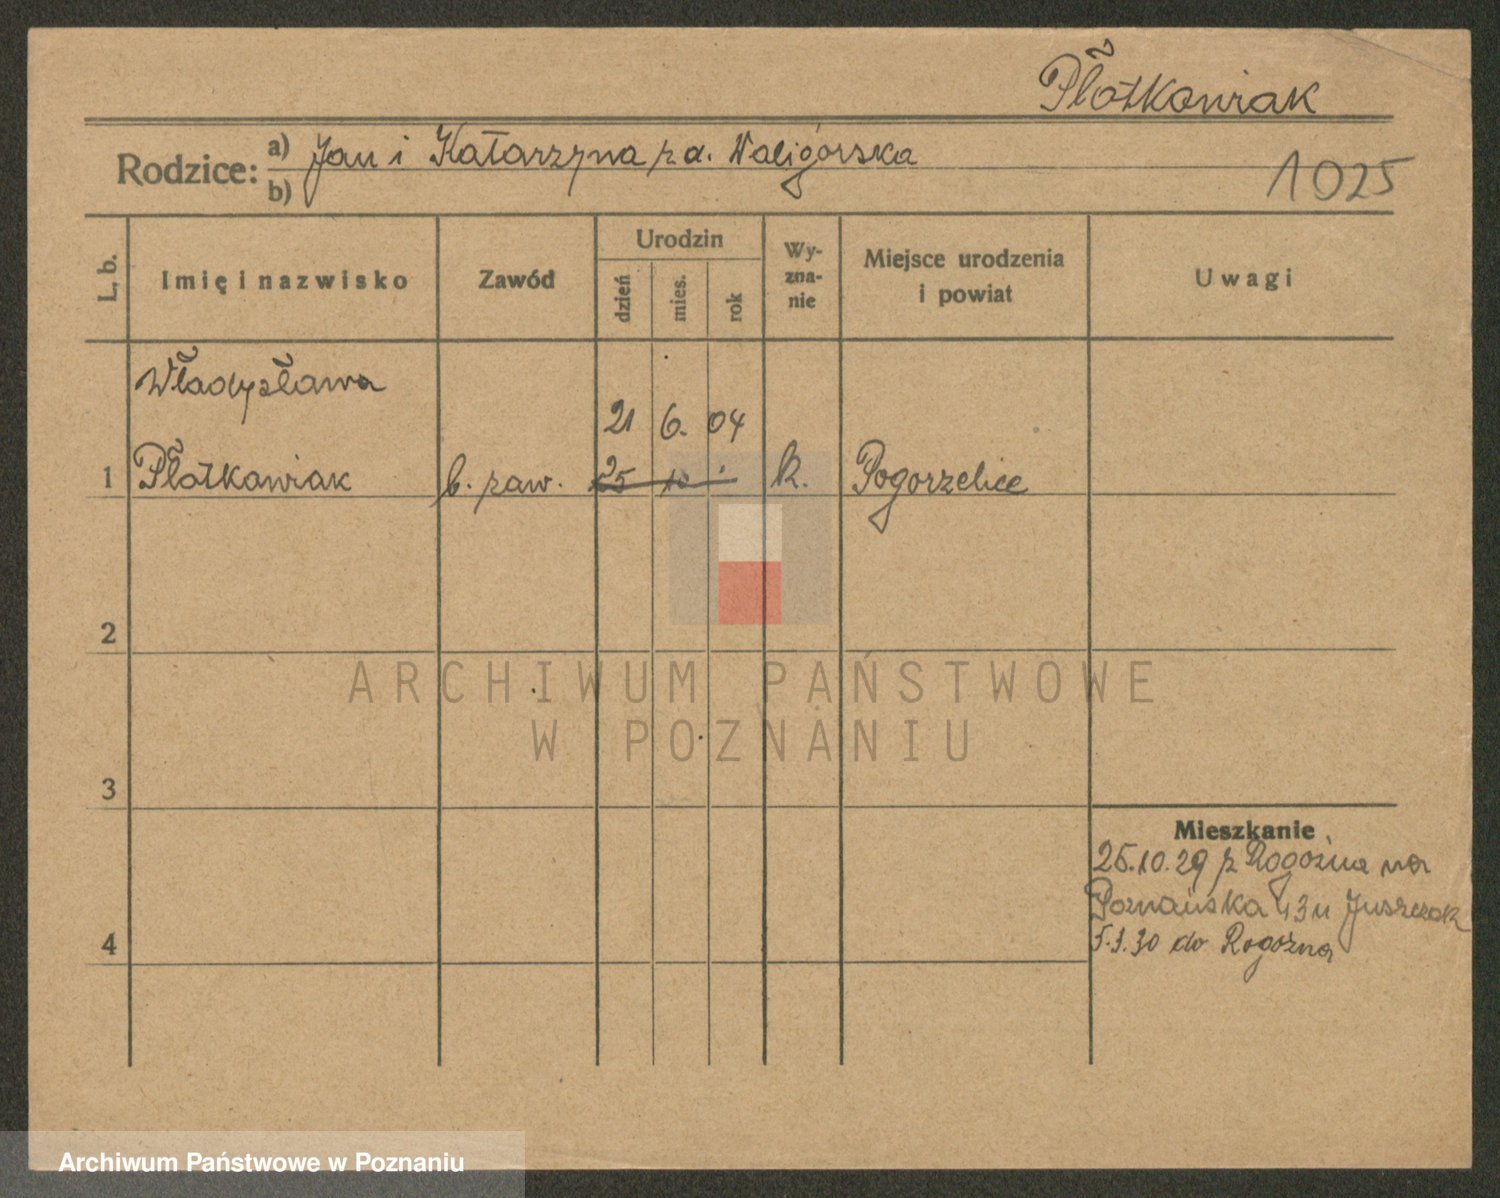 Płotkowiak
Rodzice: a) Jan i Katarzyna z d. Waligórska
b)
1025
L. b.
Imię i nazwisko
Zawód
Urodzin
dzień
mies.
rok
Wy-
zna-
nie
Miejsce urodzenia
i powiat
Uwagi
Władysława
21 6. 04
1 Płotkowiak b. zaw. 25 10 k. Pogorzelice
2
3
4
Mieszkanie
25.10.29 z Rogoźna na
Poznańska 43 u Juszczak
5.3.30 do Rogoźna
ARCHIWUM PAŃSTWOWE
W POZNANIU
Archiwum Państwowe w Poznaniu